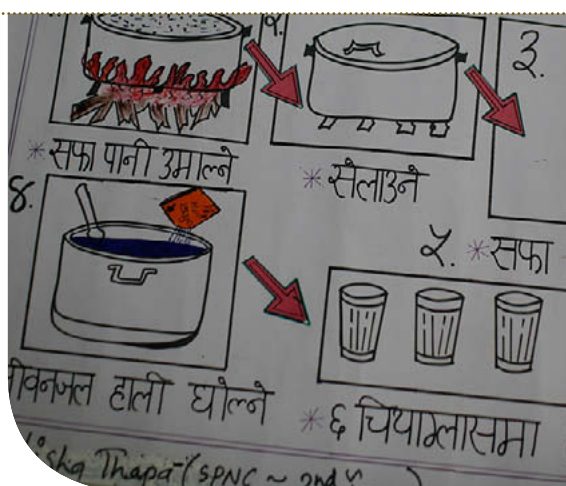 २.
३.
* सफा पानी उमाल्ने
* सेलाउने
४.
५. * सफा
जीवनजल हाली घोल्ने
* ६ चियाग्लासमा
isha Thapa - (SPNC ~ 2nd